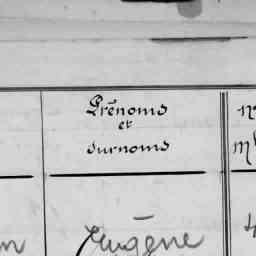 Prénoms
et
surnoms
Eugène